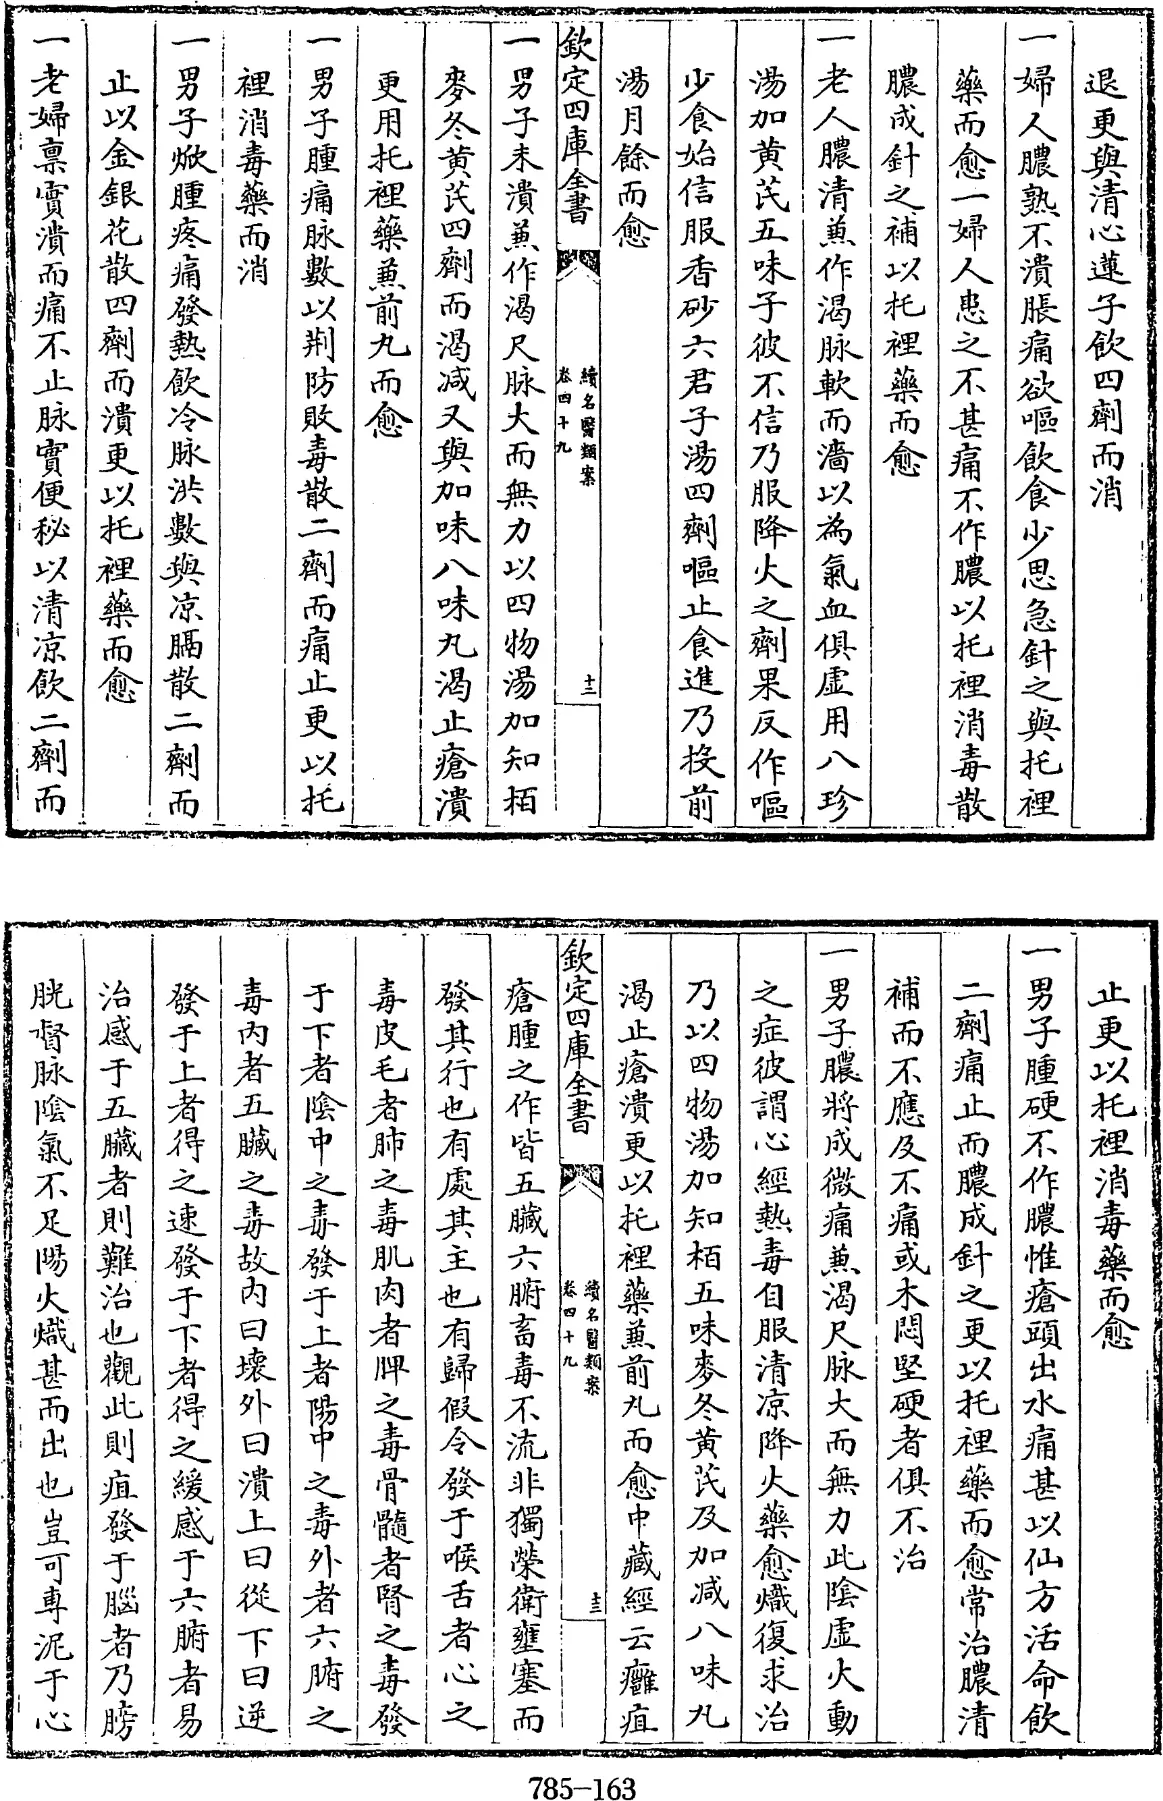 退更與清心蓮子飲四劑而消
一婦人膿熟不潰脹痛欲嘔飲食少思急針之與托裡
藥而愈一婦人患之不甚痛不作膿以托裡消毒散
膿成針之補以托裡藥而愈
一老人膿清兼作渴脉軟而濇以為氣血俱虛用八珍
湯加黄芪五味子彼不信乃服降火之劑果反作嘔
少食始信服香砂六君子湯四劑嘔止食進乃投前
湯月餘而愈
欽定四庫全書
續名醫類案
卷四十九
十二
一男子未潰兼作渴尺脉大而無力以四物湯加知栢
麥冬黄芪四劑而渴减又與加味八味丸渴止瘡潰
更用托裡藥兼前丸而愈
一男子腫痛脉數以荆防敗毒散二劑而痛止更以托
裡消毒藥而消
一男子焮腫疼痛發熱飲冷脉洪數與凉膈散二劑而
止以金銀花散四劑而潰更以托裡藥而愈
一老婦禀實潰而痛不止脉實便秘以清凉飲二劑而
止更以托裡消毒藥而愈
一男子腫硬不作膿惟瘡頭出水痛甚以仙方活命飲
二劑痛止而膿成針之更以托裡藥而愈常治膿清
補而不應及不痛或木悶堅硬者俱不治
一男子膿將成微痛兼渴尺脉大而無力此陰虛火動
之症彼謂心經熱毒自服清凉降火藥愈熾復求治
乃以四物湯加知栢五味麥冬黄芪及加减八味丸
渴止瘡潰更以托裡藥兼前丸而愈中藏經云癰疽
欽定四庫全書
續名醫類案
卷四十九
十三
瘡腫之作皆五臟六腑畜毒不流非獨榮衛壅塞而
發其行也有處其主也有歸假令發于喉舌者心之
毒皮毛者肺之毒肌肉者脾之毒骨髓者腎之毒發
于下者陰中之毒發于上者陽中之毒外者六腑之
毒內者五臟之毒故內曰壞外曰潰上曰從下曰逆
發于上者得之速發于下者得之緩感于六腑者易
治感于五臟者則難治也觀此則疽發于腦者乃膀
胱督脉陰氣不足陽火熾甚而出也豈可專泥于心
785-163